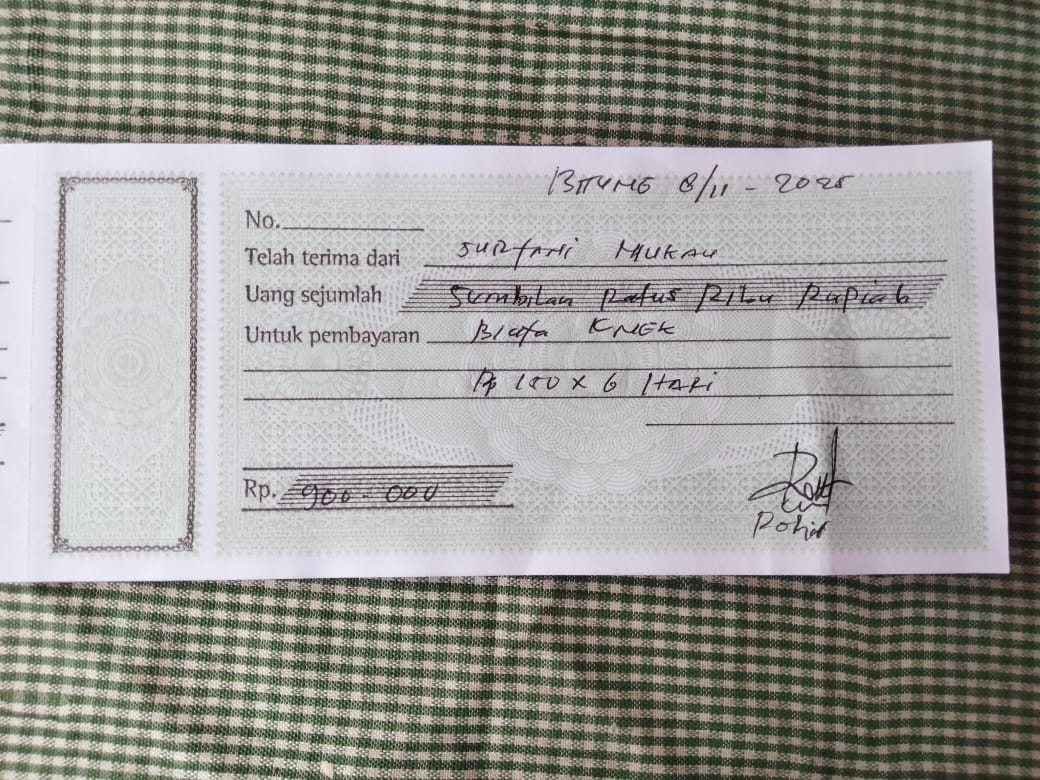 BITUNG 8/11 - 2025
No.
Telah terima dari SURTANI MUKAU
Uang sejumlah Sumbilan Ratus Ribu Rupiah
Untuk pembayaran Biaya KNEK
Rp 150 X 6 HARI
Rp. 900.000
Rohir